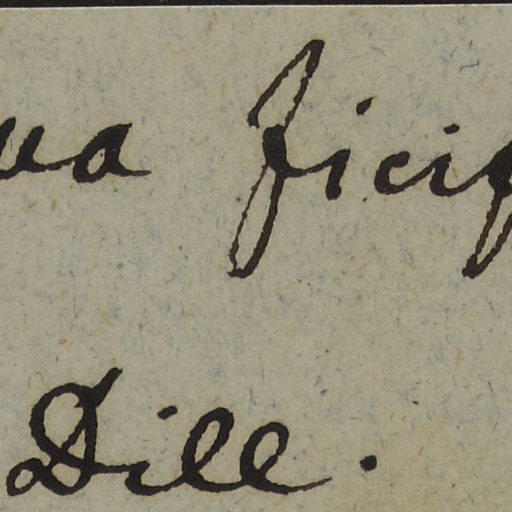 ua ficif
Dill.